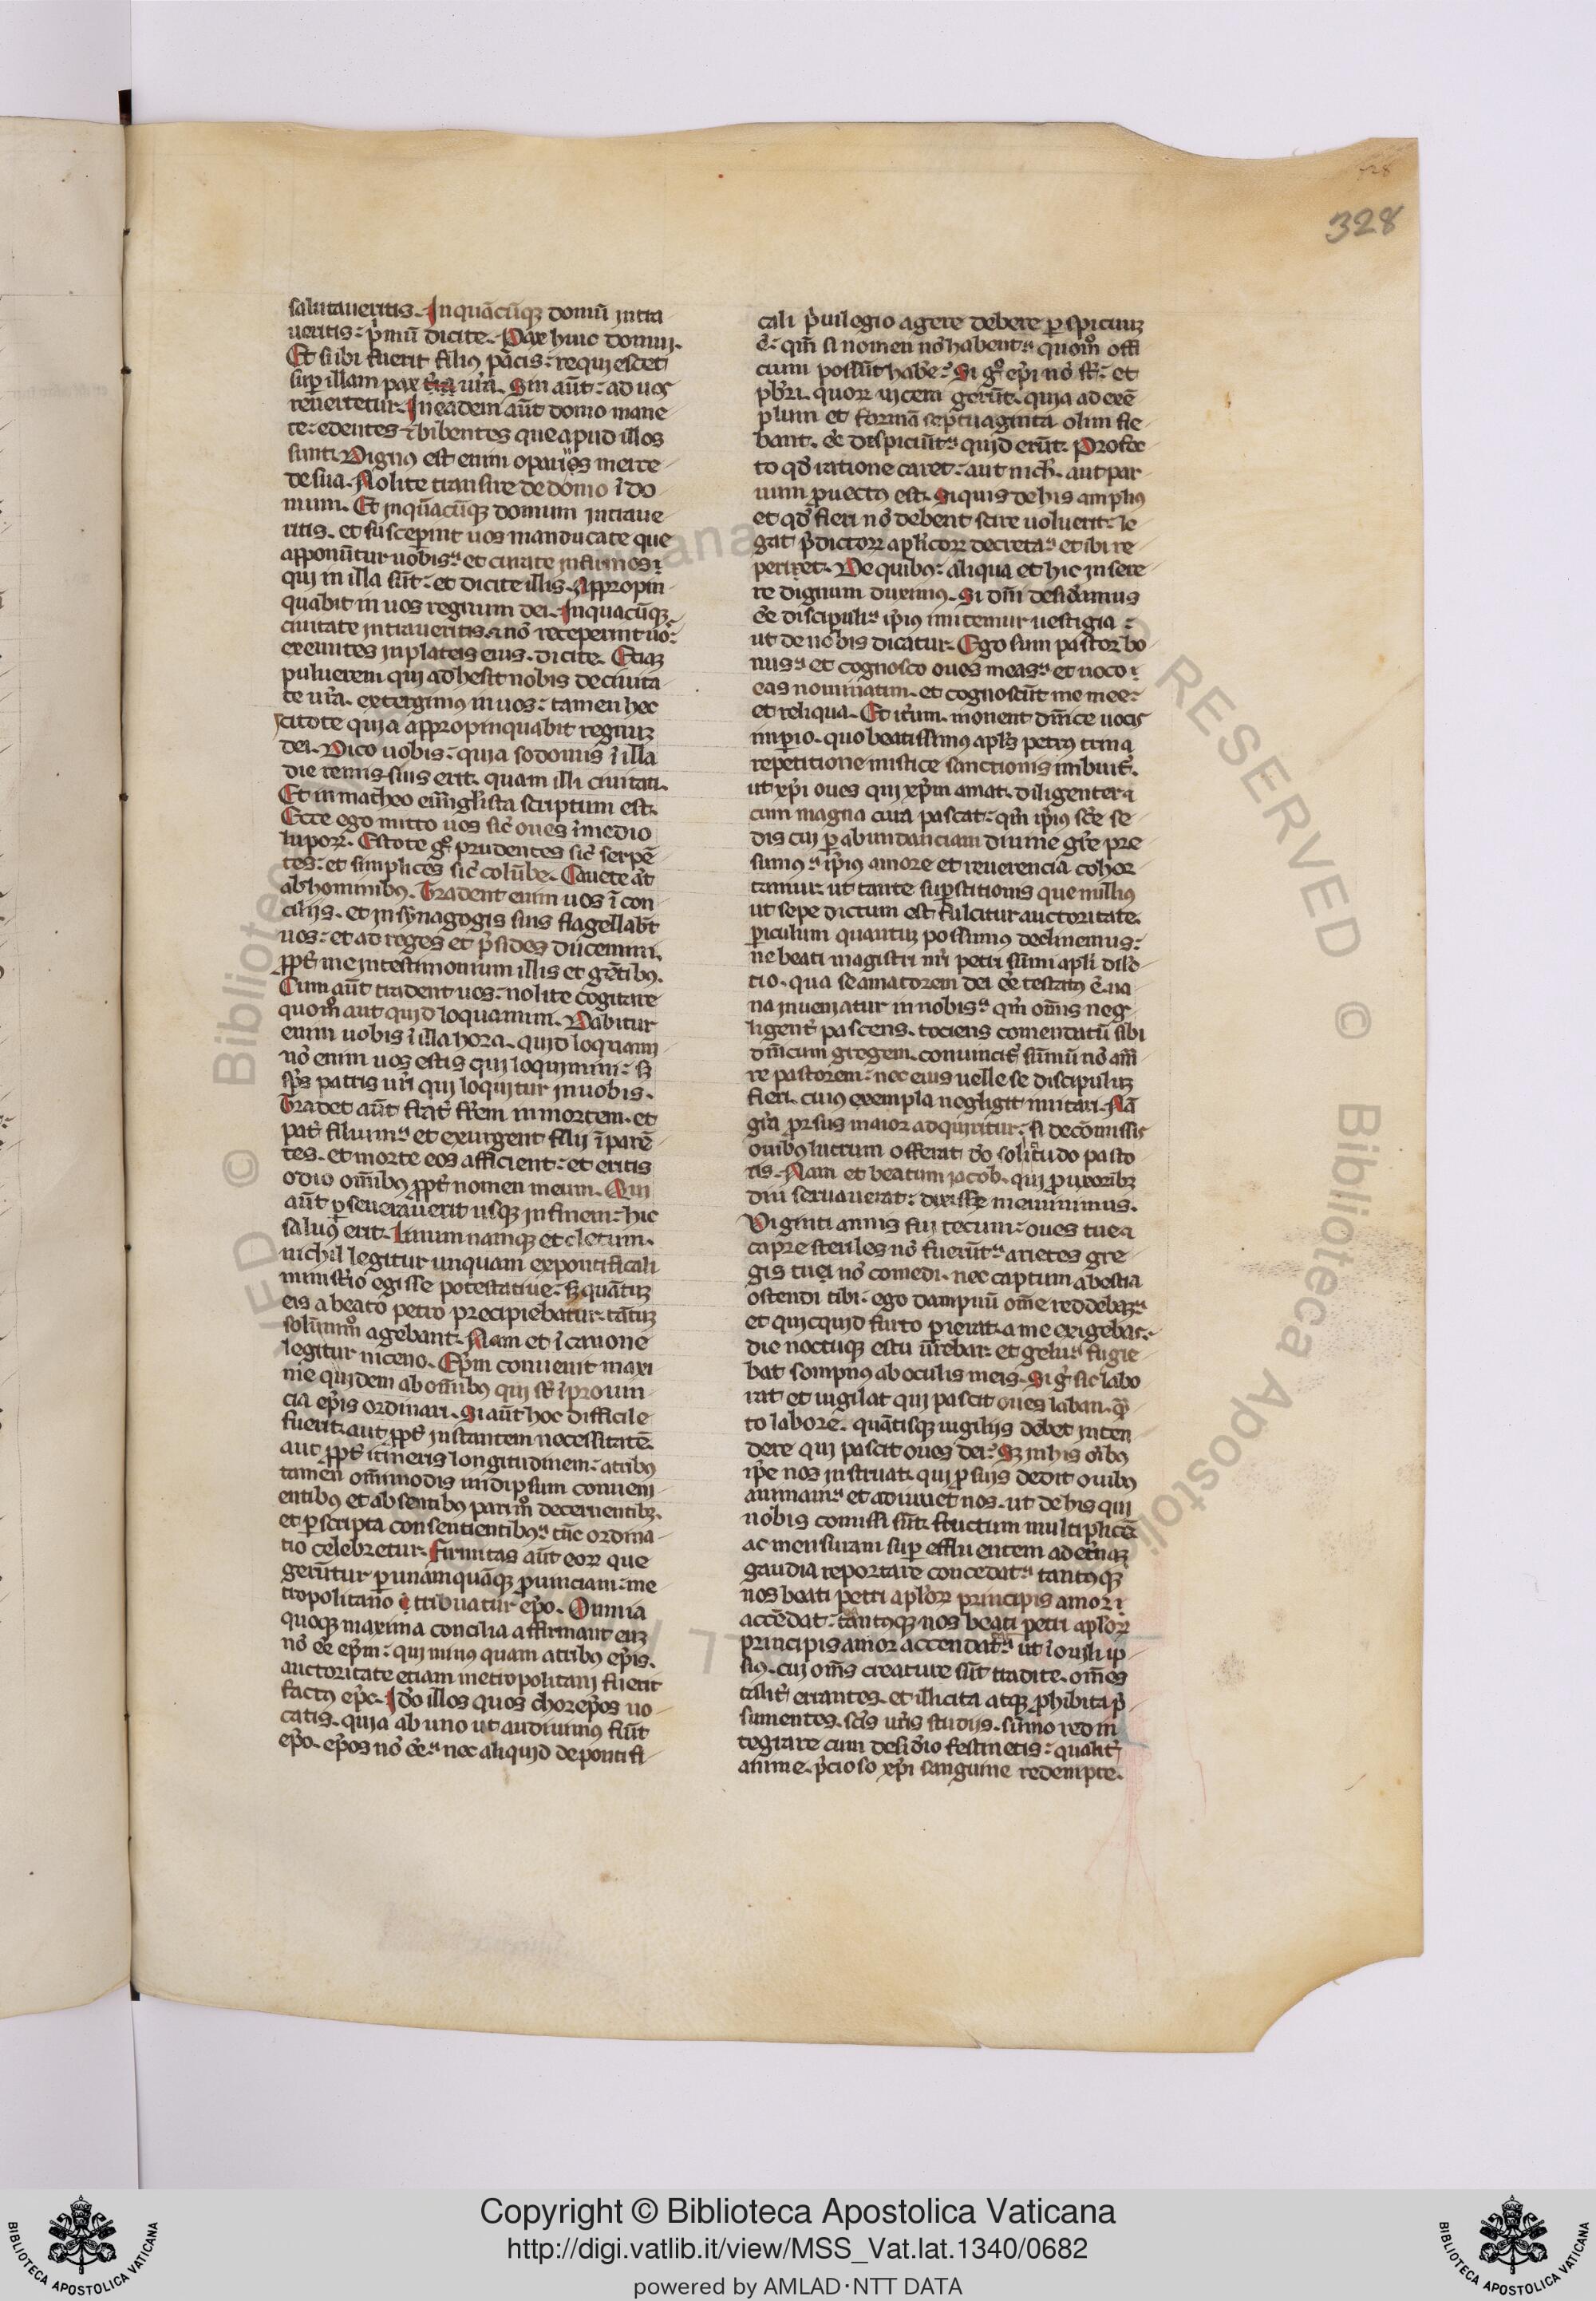 328
salutaueritis. In quācūq; domū intra
ueritis: p̄mū dicite. Pax huic domui.
Et si ibi fuerit filius pacis: requiescet
sup illam pax ur̄a. Sin aūt: ad uos
reuertetur. In eadem aūt domo mane
te: edentes ⁊ bibentes que apud illos
sunt. Dignus est enim opariꝰ merce
de sua. Nolite transire de domo ī do
mum. Et in quācūq; domum intraue
ritis. et susceperint uos manducate que
apponūtur uobis: et curate infirmos
qui in illa sūt: et dicite illis. Appropin
quabit in uos regnum dei. In quacūq;
ciuitate intraueritis. ⁊ nō receperint uos:
exeuntes in plateis eius. dicite. Etiaꝫ
puluerem qui adhesit nobis de ciuita
te ur̄a. extergimus in uos: tamen hec
scitote quia appropinquabit regnuꝫ
dei. Dico uobis: quia sodomis ī illa
die remissius erit. quam illi ciuitati.
Et in matheo euāgl̄ista scriptum est.
Ecce ego mitto uos sic̄ oues ī medio
lupoꝝ. Estote gͦ prudentes sic̄ serpē
tes: et simplices sic̄ colūbe. Cauete aūt
ab hominibꝰ. Tradent enim uos ī con
ciliis. et in synagogis suis flagellabūt
uos: et ad reges et p̄sides ducemini.
ppt̄ me in testimonium illis et gētibꝰ.
Cum aūt tradent uos: nolite cogitare
quom̊ aut quid loquamini. Dabitur
enim uobis ī illa hora. quid loquamini
nō enim uos estis qui loquimini: sꝫ
sp̄s patris ur̄i qui loquitur in uobis.
Tradet aūt frat̄ fr̄em in mortem. et
pat̄ filium: et exurgent filii ī parē
tes. et morte eos afficient: et eritis
odio om̄ibꝰ ppt̄ nomen meum. Qui
aūt perseuerauerit usq; in finem: hic
saluus erit. Linum namq; et cletum.
nichil legitur unquam ex pontificali
ministerio egisse potestatiue: sꝫ quātuꝫ
eis a beato petro precipiebatur: tātuꝫ
solūm̊ agebant. Nam et ī canone
legitur niceno. Ep̄m conuenit maxi
me quidem ab om̄ibꝰ qui sūt ī prouin
cia ep̄is ordinari. Si aūt hoc difficile
fuerit: aut ppt̄ instantem necessitatē.
aut ppt̄ itineris longitudinem: a tribꝰ
tamen om̄imodis in idipsum conueni
entibꝰ et absentibꝰ pari m̊ decernentibꝫ.
et perscripta consentientibꝰ: tūc ordina
tio celebretur. Firmitas aūt eoꝝ que
gerūtur per unamquāq; prouinciam: me
tropolitano tribuatur ep̄o. Omnia
quoq; maxima concilia affirmant euꝫ
nō eē ep̄m: qui minus quam a tribus ep̄is.
auctoritate etiam metropolitani fuerit
factus ep̄c. Id̊o illos quos chorep̄os uo
catis. quia ab uno ut audiuimus fiūt
ep̄o. ep̄os nō eē: nec aliquid de pontifi
cali p̄uilegio agere debere perspicuuꝫ
ē: qm̄ si nomen nō habent: quom̊ offi
cium possūt habe᷒: Si gͦ ep̄i nō sūt: et
pb̄ri. quoꝝ uicem gerūt. quia ad exē
plum et formā septuaginta olim fie
bant. eē despiciūt: quid erūt. Profec
to qđ ratione caret: aut nich̄. aut par
uum prouectus est. Si quis de his amplius
et qđ fieri nō debent scire uoluerit: le
gat p̄dictoꝝ apl̄icoꝝ decreta: et ibi re
periet. De quibꝰ: aliqua et hic insere
re dignum duximus. Si dn̄i desid̄amus
eē discipuli: ip̄ius imitemur uestigia:
ut de nobis dicatur. Ego sum pastor bo
nus: et cognosco oues meas: et uoco
eas nominatim. et cognoscūt me mee:
et reliqua. Et it̄um. monent dn̄ice uocis
imperio. quo beatissimus apl̄s petrus trina
repetitione mistice sanctionis imbuit̄.
ut xp̄i oues qui xp̄m amat. diligenter
cum magna cura pascat: qm̄ ip̄ius sc̄e se
dis cui per abundanciam diuine gr̄e pre
sumus: ip̄ius amore et reuerencia cohor
tamur: ut tante superstitionis que nullius
ut sepe dictum est fulcitur auctoritate.
periculum quantuꝫ possumus declinemus:
ne beati magistri nr̄i petri sūmi apl̄i dilc̄
tio. qua se amatorem dei eē testatus ē. ua
na inueniatur in nobis: qm̄ om̄is neg
ligent̄ pascens. tociens comendatū sibi
dn̄icum gregem. conuincit̄ sūmū nō ama
re pastorem: nec eius uelle se discipuluꝫ
fieri. cuius exempla negligit imitari. Nā
gr̄a prorsus maior adquiritur: si de cōmissis
ouibꝰ lucrum offerat dō solicitudo pasto
ris. Nam et beatum iacob. qui pro uxoribꝫ
diu seruauerat: dixisse meminimus.
Viginti annis fui tecum: oues tue
capre steriles nō fuerūt: arietes gre
gis tui nō comedi. nec captum a bestia
ostendi tibi. ego dampnū om̄e reddebaꝫ:
et quicquid furto perierat. a me exigebas:
die noctuq; estu urebar: et gelu: fugie
bat sompnus ab oculis meis. Si gͦ sic labo
rat et uigilat qui pascit oues laban. q̄
to labore. quātisq; uigiliis debet inten
dere qui pascit oues dei: Sꝫ in his oībꝰ
ip̄e nos instruat. qui pro suis dedit ouibꝰ
animam: et adiuuet nos. ut de his qui
nobis comissi sūt. fructum multiplicē
ac mensuram sup effluentem ad et̄naꝫ
gaudia reportare concedat: tantūq;
nos beati petri apl̄oꝝ principis amor
accēdat: tantūq; nos beati petri apl̄oꝝ
principis amor accendat: ut ī ouili ip
sius. cui om̄s creature sūt tradite. om̄es
talit̄ errantes. et illicita atq; prohibita p̄
sumentes. sc̄is ur̄is studiis. sūmo redin
tegrare cum desid̄io festinetis: qualit̄
anime. p̄cioso xp̄i sanguine redempte.
Copyright © Biblioteca Apostolica Vaticana
http://digi.vatlib.it/view/MSS_Vat.lat.1340/0682
powered by AMLAD·NTT DATA
BIBLIOTECA APOSTOLICA VATICANA
BIBLIOTECA APOSTOLICA VATICANA